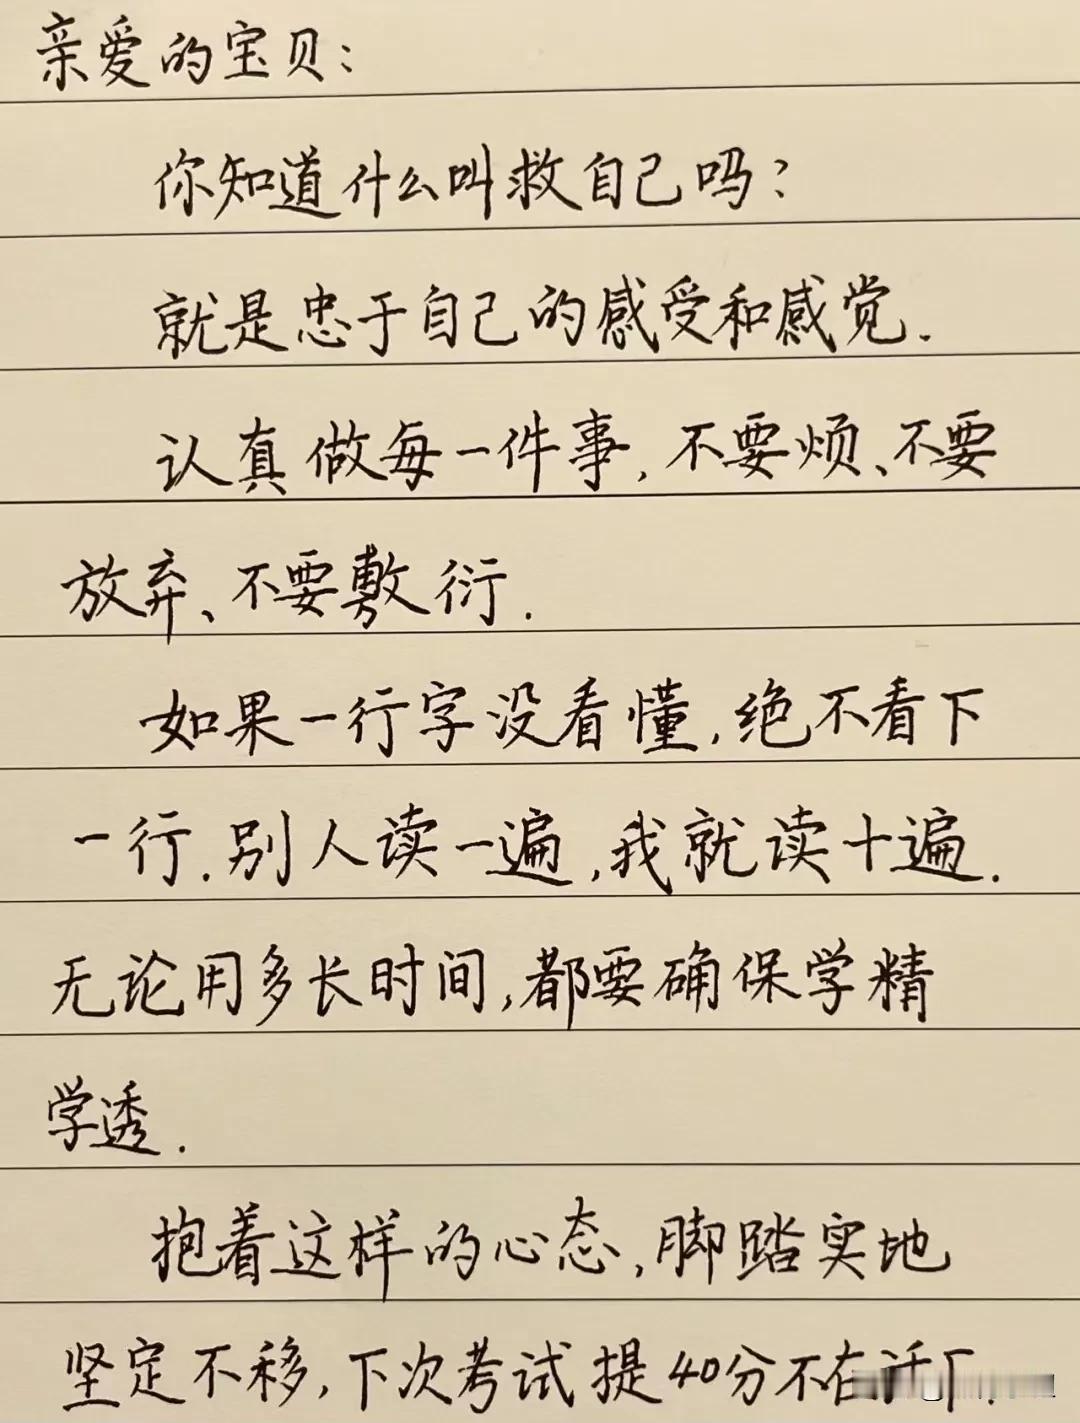 亲爱的宝贝：
你知道什么叫救自己吗？
就是忠于自己的感受和感觉.
认真做每一件事,不要烦、不要
放弃、不要敷衍.
如果一行字没看懂,绝不看下
一行.别人读一遍,我就读十遍.
无论用多长时间,都要确保学精
学透.
抱着这样的心态,脚踏实地
坚定不移,下次考试提40分不在话下.